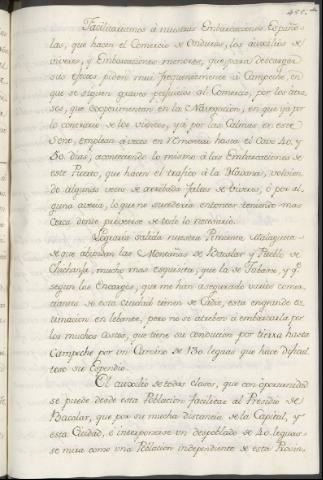 Facilitariamos á nuestras Embarcaciones Españo-
las, que hacen el Comercio de Onduras, los auxilios de
viveres, y Embarcaciones menores, que para descargar
sus efectos piden mui frequentemente á Campeche, en
que se siguen graves perjuicios al Comercio, por los atra-
ses, que experimentan en la Navegacion, en que ya por
lo contrario de los vientos, ya por las Calmas en este
Seno, emplean á veces en Remontar hasta el Cavo 40. y
50. dias, aconteciendo lo mismo á las Embarcaciones de
este Puerto, que hacen el trafico á la Havana, volvien-
do algunas veces de arribada faltas de viveres, ó por al-
guna averia, lo que no sucederia entonces teniendo mas
cerca donde proveerse de todo lo necesario.
Lograria salida nuestra Pimienta Malagueta
de que abundan las Montañas de Bacalar y Pueblo de
Chichanjá, mucho mas exquisita, que la de Tabasco, y q.e
segun los Encargos, que me han asegurado varios comer-
ciantes de esta Ciudad tienen de Cadiz, está en grande es-
timacion en lebante, pero no se atreben á embarcarla por
los muchos costos, que tiene su conduccion por tierra hasta
Campeche por un Camino de 130. leguas que hace dificul-
toso su Expendio.
El auxilio de todas clases, que con oportunidad
se puede desde esta Poblacion facilitar al Presidio de
Bacalar, que por su mucha distancia de la Capital, y
esta Ciudad, é interponerse un despoblado de 40. leguas
se mira como una Poblacion independiente de esta Provin-